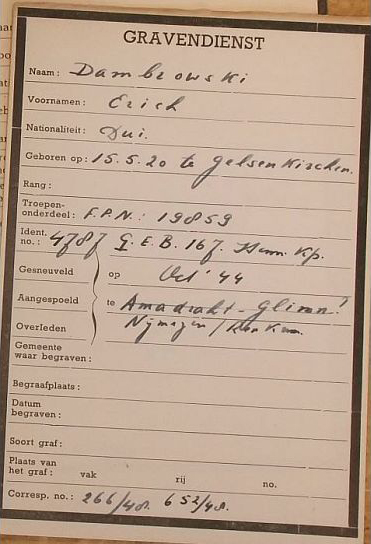 GRAVENDIENST
Naam: Dambrowski
Voornamen: Erich
Nationaliteit: Dui.
Geboren op: 15.5.20 te Gelsenkirchen.
Rang:
Troepen-
onderdeel: F.P.N.: 19859
Ident.
no.: 4787 G.E.B. 167. Kp.
Gesneuveld op Oct '44
Aangespoeld te
Overleden Nijmegen /
Gemeente
waar begraven:
Begraafplaats:
Datum
begraven:
Soort graf:
Plaats van
het graf: vak rij no.
Corresp. no.: 266/48. 652/48.